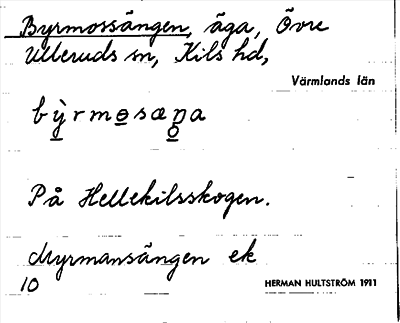 Byrmossängen, äga, Övre
Ulleruds sn, Kils hd,
Värmlands län
På Hellekilsskogen.
Myrmansängen ek
10
HERMAN HULTSTRÖM 1911